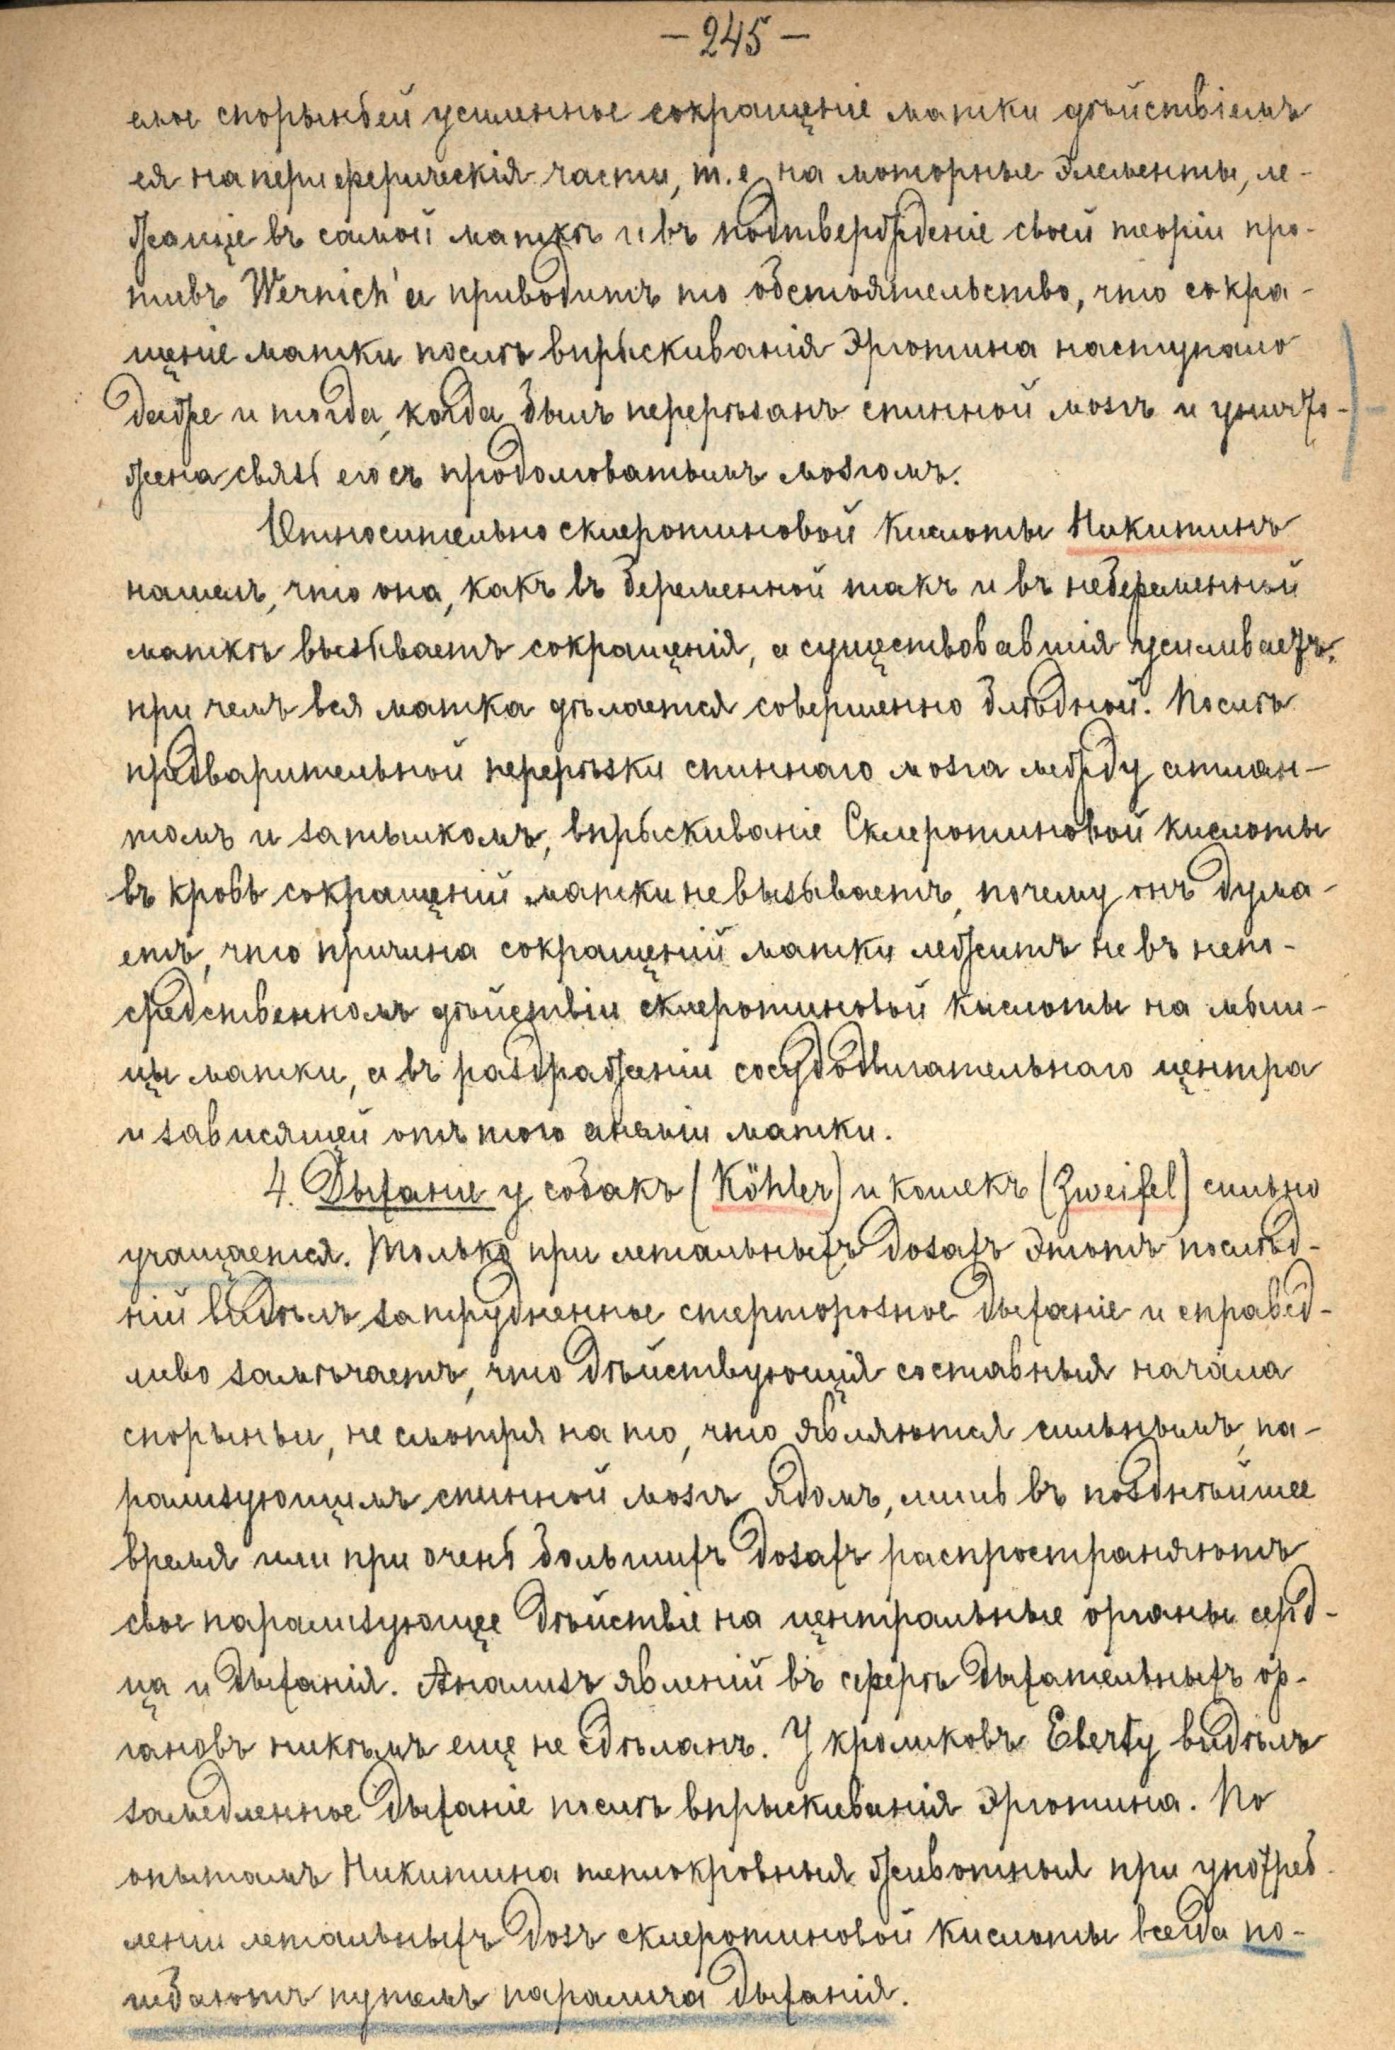 — 245 —
емое спорыньей усиленное сокращеніе матки дѣйствіемъ
ея на периферическія части, т. е. на моторные элементы, ле-
жащіе въ самой маткѣ и въ подтвержденіе своей теоріи про-
тивъ Wernich'a приводитъ то обстоятельство, что сокра-
щеніе матки послѣ впрыскиванія Эрготина наступало
даже и тогда, когда былъ перерѣзанъ спинной мозгъ и уничто-
жена связь его съ продолговатымъ мозгомъ.
Относительно склеротиновой кислоты Никитинъ
нашелъ, что она, какъ въ беременной такъ и въ небеременной
маткѣ вызываетъ сокращенія, а существовавшія усиливаетъ,
при чемъ вся матка дѣлается совершенно блѣдной. Послѣ
предварительной перерѣзки спиннаго мозга между атлан-
томъ и затылкомъ, впрыскиваніе Склеротиновой кислоты
въ кровь сокращеній матки не вызываетъ, почему онъ дума-
етъ, что причина сокращеній матки лежитъ не въ непо-
средственномъ дѣйствіи склеротиновой кислоты на мыш-
цы матки, а въ раздраженіи сосудодвигательнаго центра
и зависящей отъ того анэміи матки.
4. Дыханіе у собакъ (Köhler) и кошекъ (Zweifel) сильно
учащается. Только при летальныхъ дозахъ этотъ послѣд-
ній видѣлъ затрудненное стерторозное дыханіе и справед-
ливо замѣчаетъ, что дѣйствующія составныя начала
спорыньи, не смотря на то, что являются сильнымъ, па-
рализующимъ спинной мозгъ ядомъ, лишь въ позднѣйшее
время или при очень большихъ дозахъ распространяютъ
свое парализующее дѣйствіе на центральные органы серд-
ца и дыханія. Анализъ явленій въ сферѣ дыхательныхъ ор-
гановъ никѣмъ еще не сдѣланъ. У кроликовъ Eberty видѣлъ
замедленное дыханіе послѣ впрыскиванія Эрготина. По
опытамъ Никитина теплокровныя животныя при употреб-
леніи летальныхъ дозъ склеротиновой кислоты всегда по-
гибаютъ путемъ паралича дыханія.